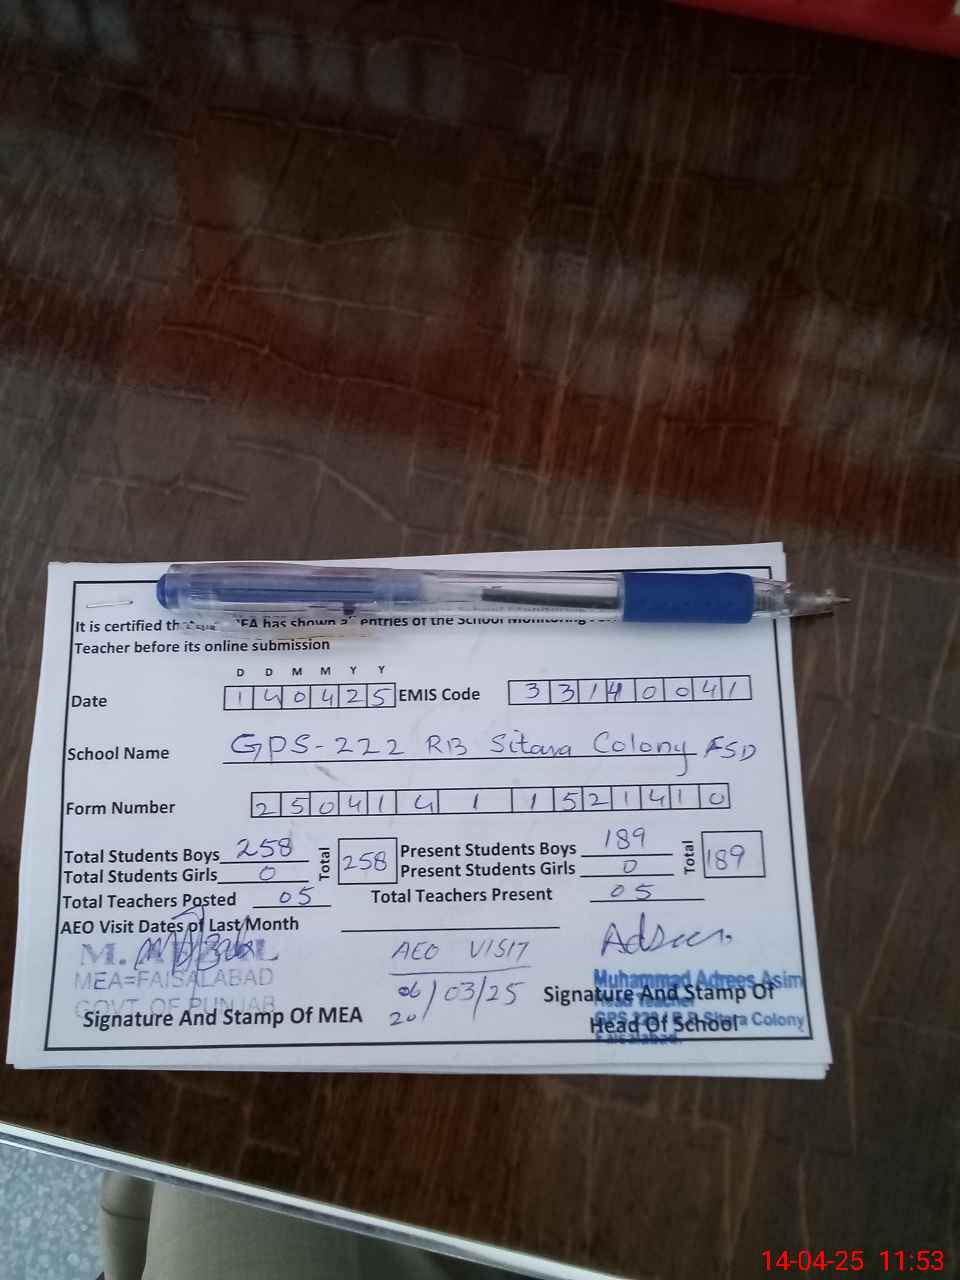 It is certified that MEA has shown all entries of the School Monitoring
Teacher before its online submission
D D M M Y Y
Date 1 4 0 4 2 5 EMIS Code 3 3 1 4 0 0 4 1
School Name GPS-222 RB Sitara Colony FSD
Form Number 2 5 0 4 1 4 1 1 5 2 1 4 1 0
Total Students Boys 258 Total 258 Present Students Boys 189 Total 189
Total Students Girls 0 Present Students Girls 0
Total Teachers Posted 05 Total Teachers Present 05
AEO Visit Dates of Last Month
AEO VISIT
M.
MEA=FAISALABAD
GOVT. OF PUNJAB
Signature And Stamp Of MEA
06/03/25
20
Muhammad Adrees Asim
Signature And Stamp Of
Head Of School
Sitara Colony
Faisalabad.
14-04-25 11:53